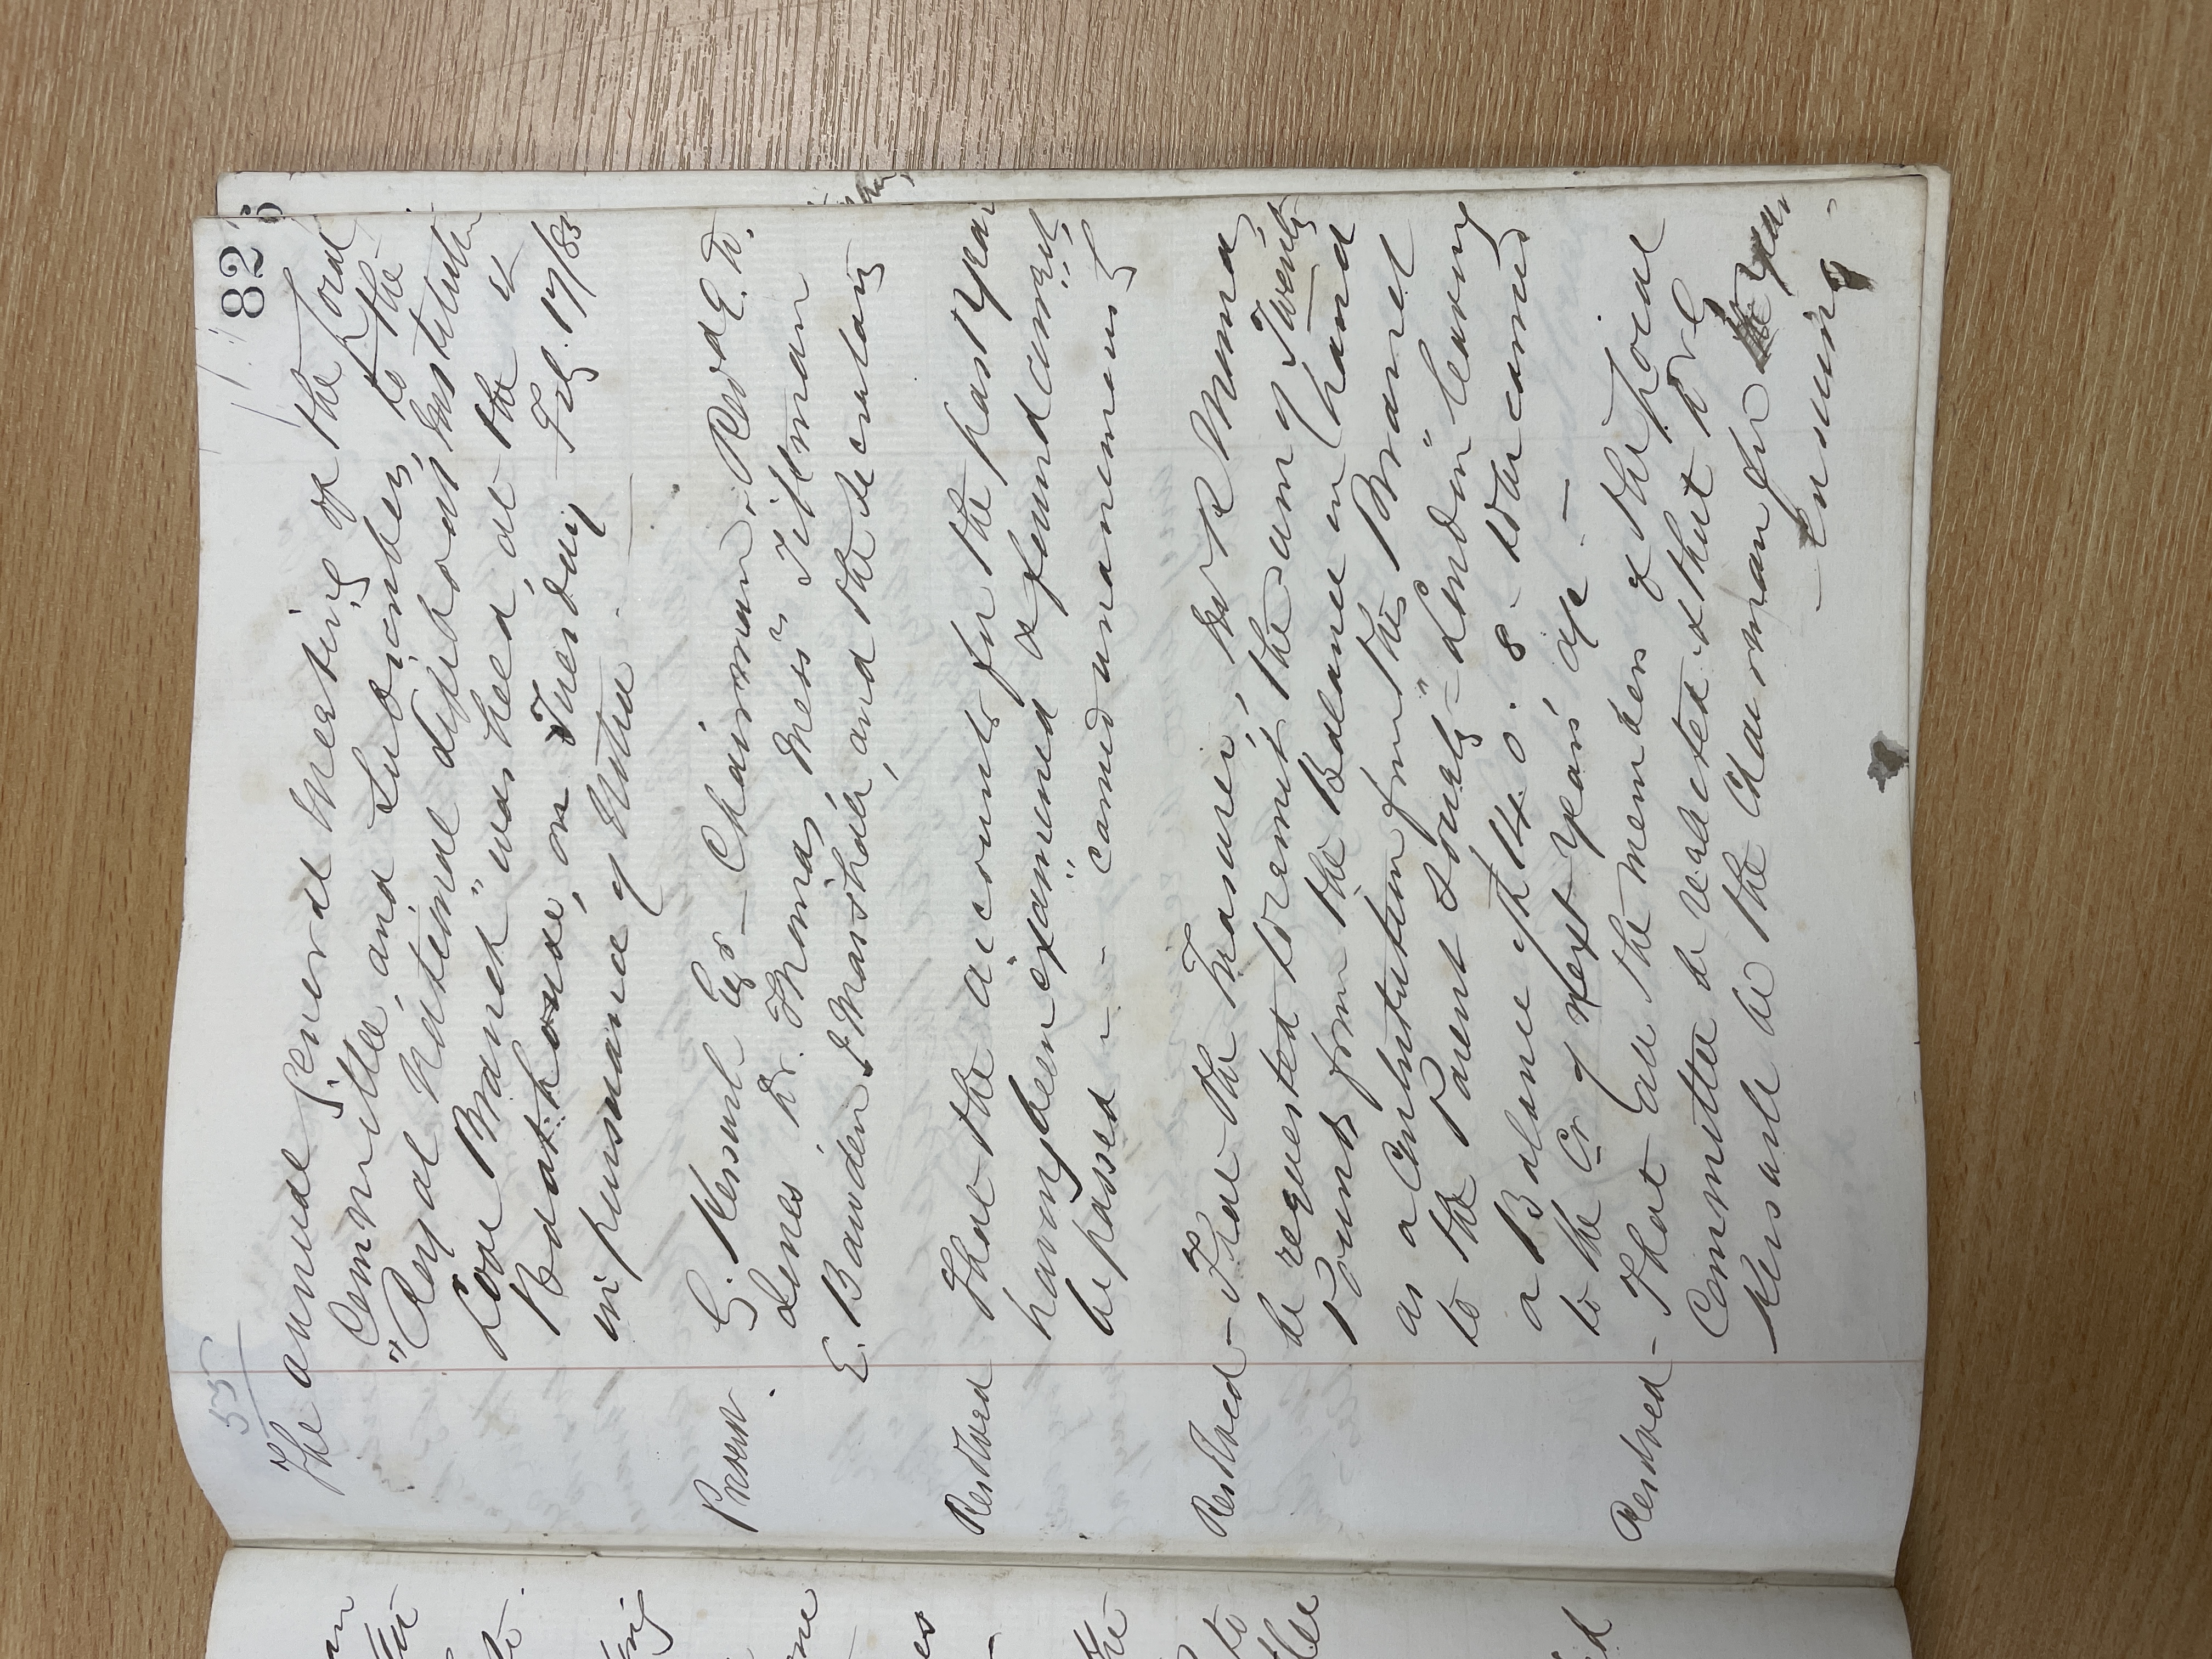 53
82
The annual general Meeting of the Local
Committee, and Subscribers, to the
"Royal National Lifeboat Institution
Cove Branch" was held, at the
Boathouse, on Tuesday Feb. 17/85
in pursuance of Notice.
Present. G. Kerswell Esq - Chairman. Revd E. D.
Lines Dr. Thomas, Mess rs Tillman
E. Bawden, J Marshall, and the Secretary
Resolved That the accounts for the past year
having been examined & found correct,
be passed - - carried unanimously
Resolved - That the Treasurer, Dr R Thomas,
be requested to remit the sum of Twenty
Pounds from the Balance in hand
as a Contribution from the "Branch"
to the "Parent Society" London leaving
a Balance of £14. 0. 8 - to be carried
to the Cr of Next year's a/c -
Resolved - That all the members of the Local
Committee be reelected & that Mr G
Kerswell be the Chairman for the year
ensuing -